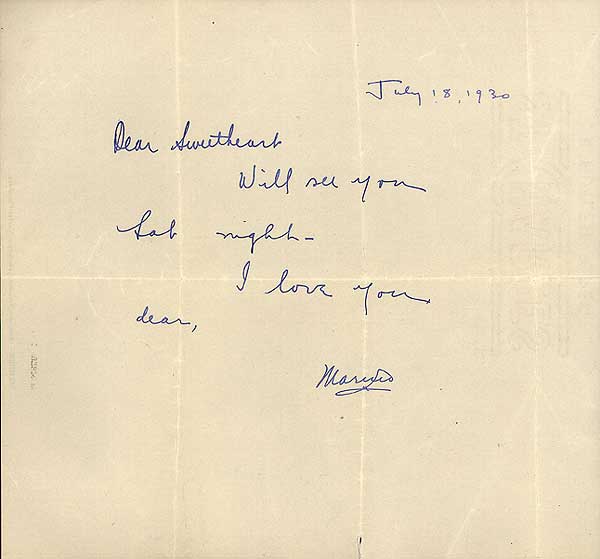 July 18, 1930
Dear Sweetheart
Will see you
Sat night –
I love you
dear,